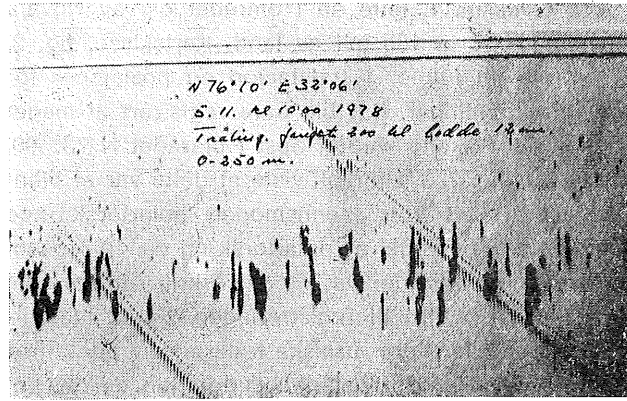 N 76°10' E 32°06'
5. 11. kl 10⁰⁰ 1978
Tråling. fanget 200 hl lodde 12 mn,
0-250 m.